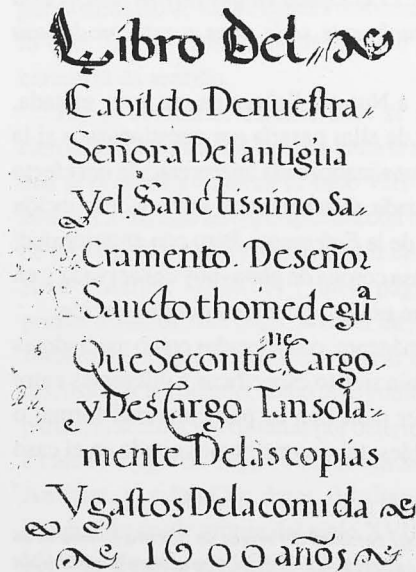 Libro Del
Cabildo Denuestra
Señora Del antigua
yel Sanctissimo Sa-
Cramento. De señor
Sancto thome de gilª
Que Se contiene Cargo.
y Des Cargo Tan sola-
mente Delas copias
Y gastos Dela comida
1600 años